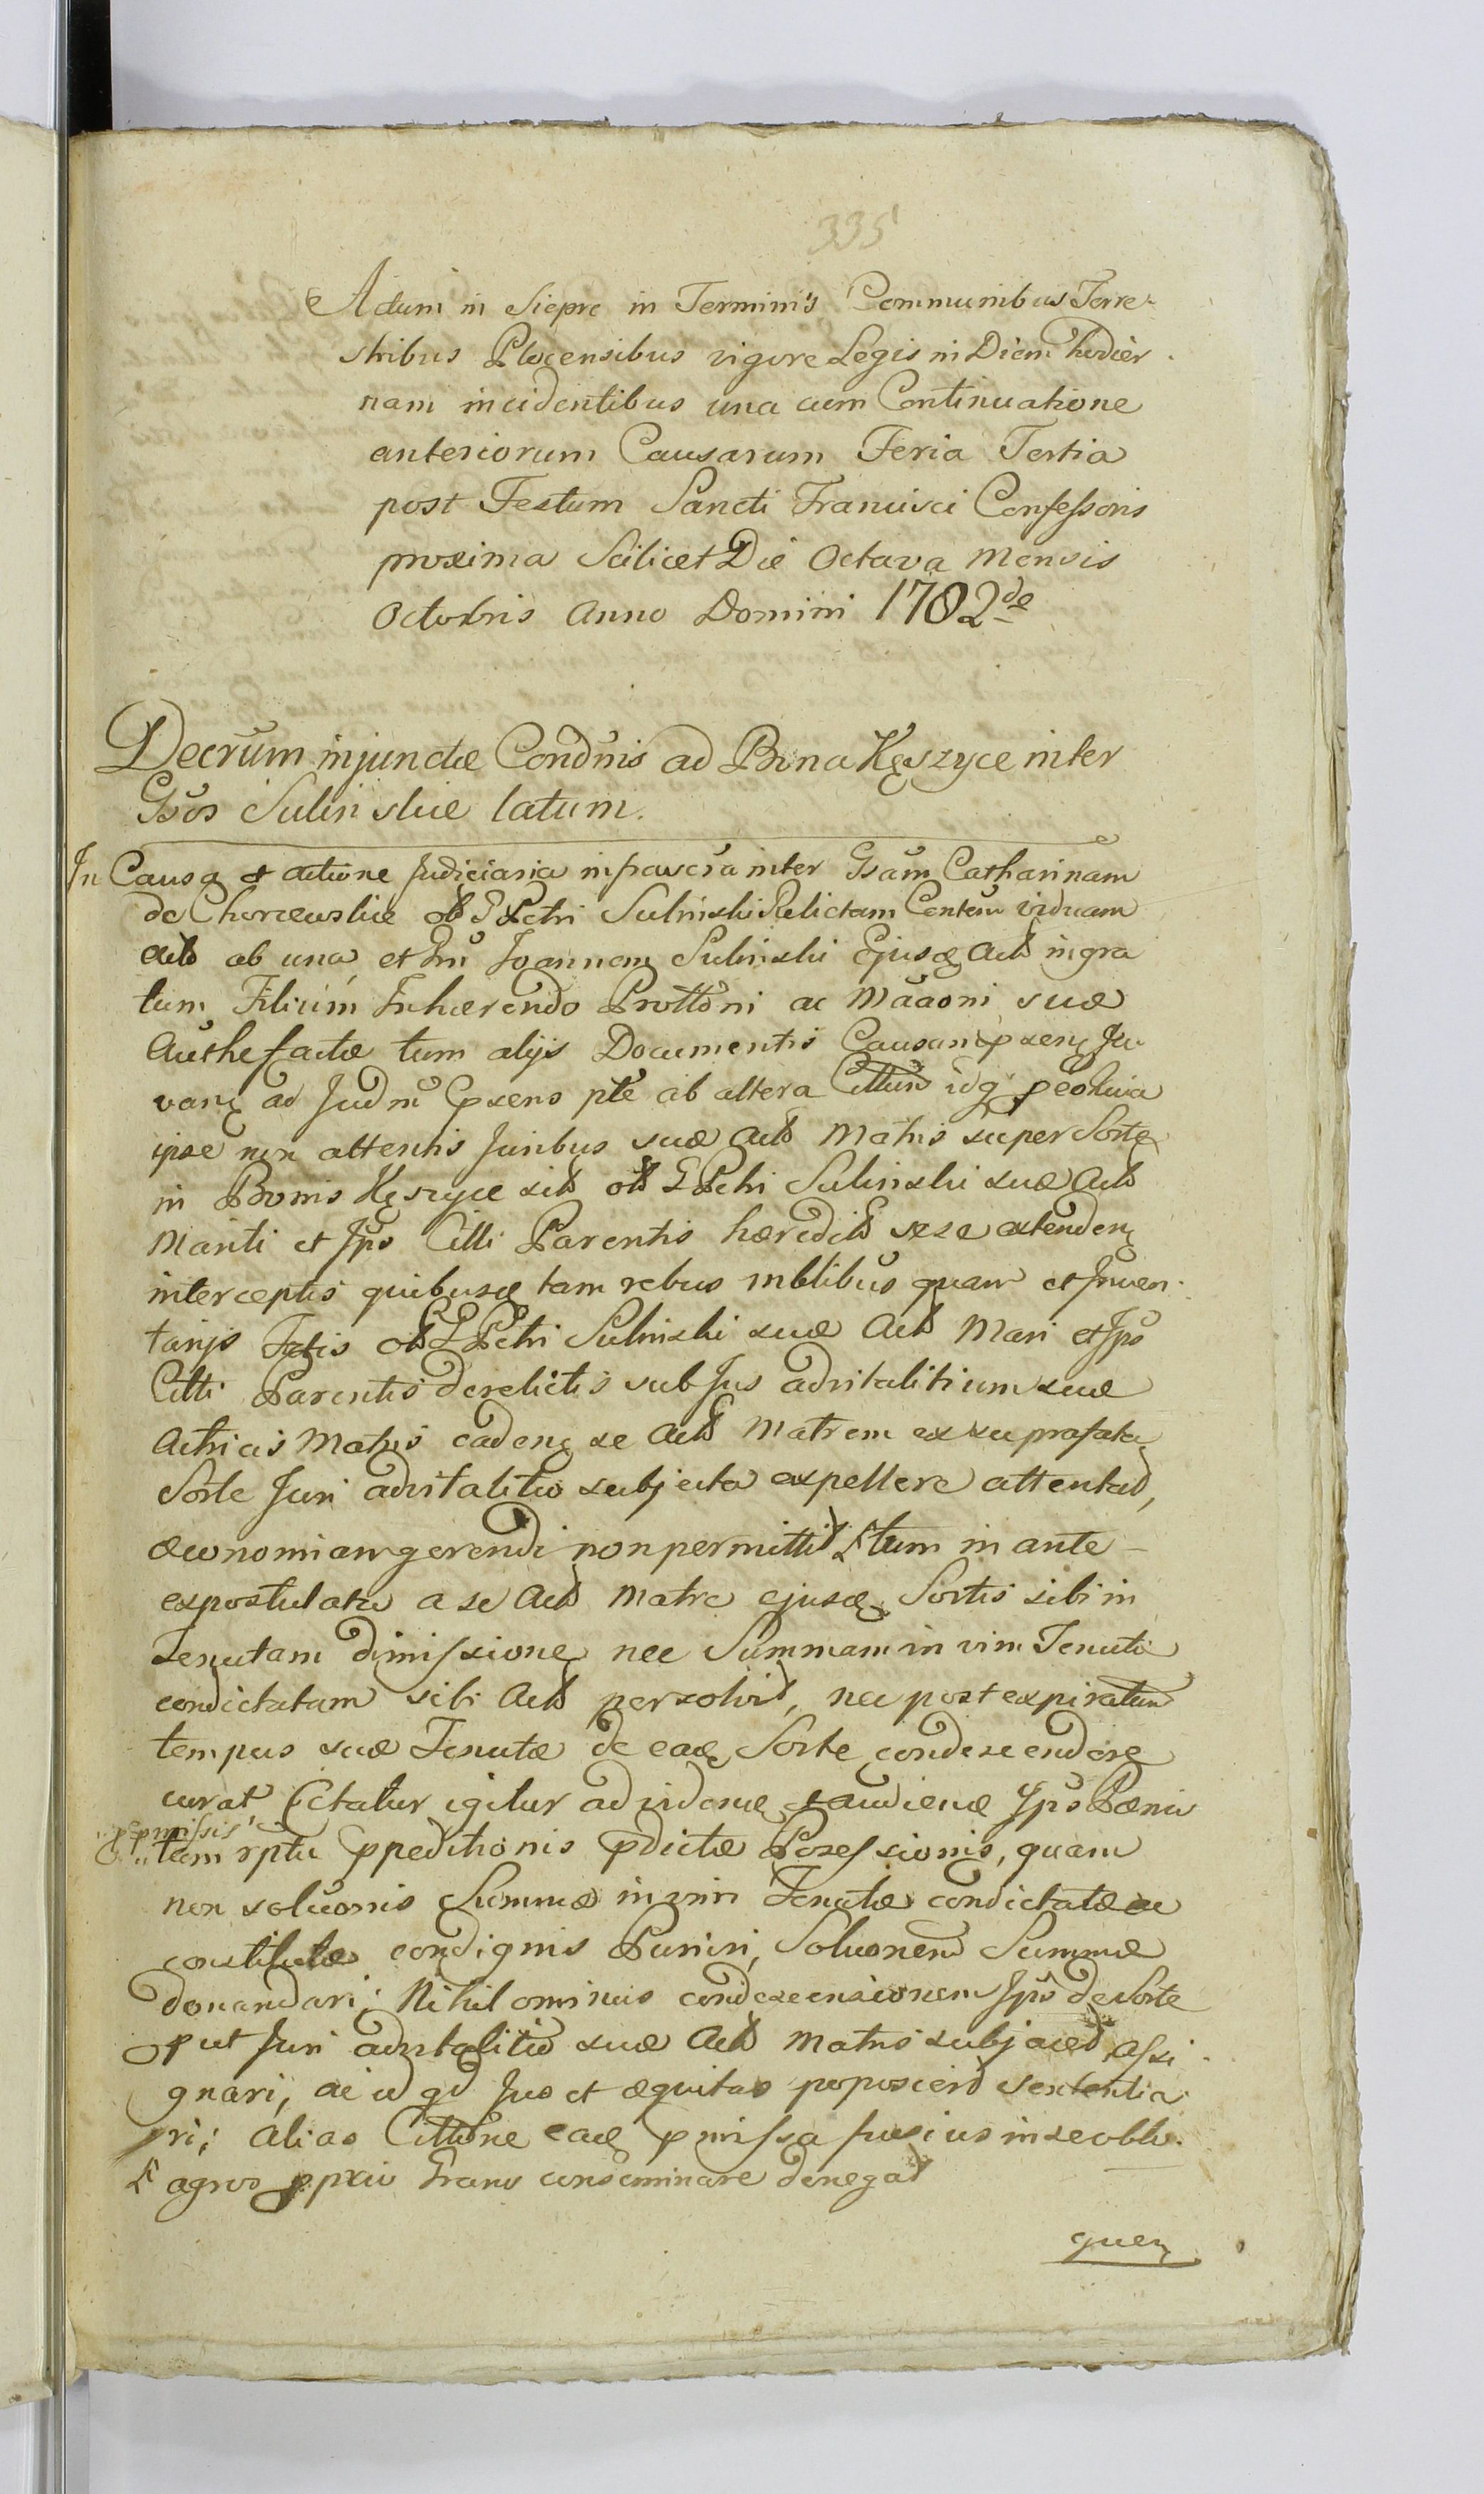 335
Actum in Sieprc in Terminis Communibus Terre-
stribus Plocensibus vigore Legis in Diem hodier-
nam incidentibus una cum Continuatione
anteriorum Causarum Feria Tertia
post Festum Sancti Francisci Confessoris
proxima Scilicet Die Octava Mensis
Octobris Anno Domini 1782do
Decrum injunctæ Condnis ad Bona Kęszyce inter
Gsos Sulinskie latum.
In Causa et actione Judiciaria infrascra inter Gsam Catharinam
de Chorzewskie olt G Petri Sulinski Relictam Consem viduam
Act ab una, et Gsm Joannem Sulinski Ejusd Act ingra
tum Filium Inhærendo Prottoni ac Maaoni suæ
Authe factæ tum alijs Documentis Causam pxen Ju
van ad Judm pxens pte ab altera Citum idq
ipse non attentis Juribus suæ Act Matris super Sorte
in Bonis Kęszyce sit olt G Petri Sulinski suæ Act
Mariti et Jps Citti Parentis hæredit sese extenden
interceptis quibusd tam rebus mblibus quam et Inven-
tarijs olt G Petri Sulinski suæ Act Mari et Jps
Citti Parentis derelictis sub Jus advitalitium suæ
Actricis Matris caden se Act Matrem ex suprafata
Sorte Juri advitalitio subjecta expellere attentat,
œconomiam gerendi non permittit tum in ante-
expostulata a se Act Matre ejusd Sortis sibi in
Tenutam dimissione nec Summam in vim Tenutæ
condictatam sibi Act persolvit, nec post expiratum
tempus suæ Tenutæ de ead Sorte condescendere
curat, Citatur igitur ad viden et audien Jps Pænis
pmissis
tam rptu ppeditionis pdictæ Possessionis, quam
non soluonis Summæ in vim Tenutæ condictatæ ac
constitutæ condignis Puniri, Soluonem Summæ
demandari; Nihilominus condescensionem Jps de Sorte
put Juri advitalitio suæ Act Matris subjacet assi-
gnari, ac id qd Jus et æquitas poposcerit sententia
ri; alias Cittone ead pmissa fusius in se obbl.
agros pprio Grano conseminare denegat
quen